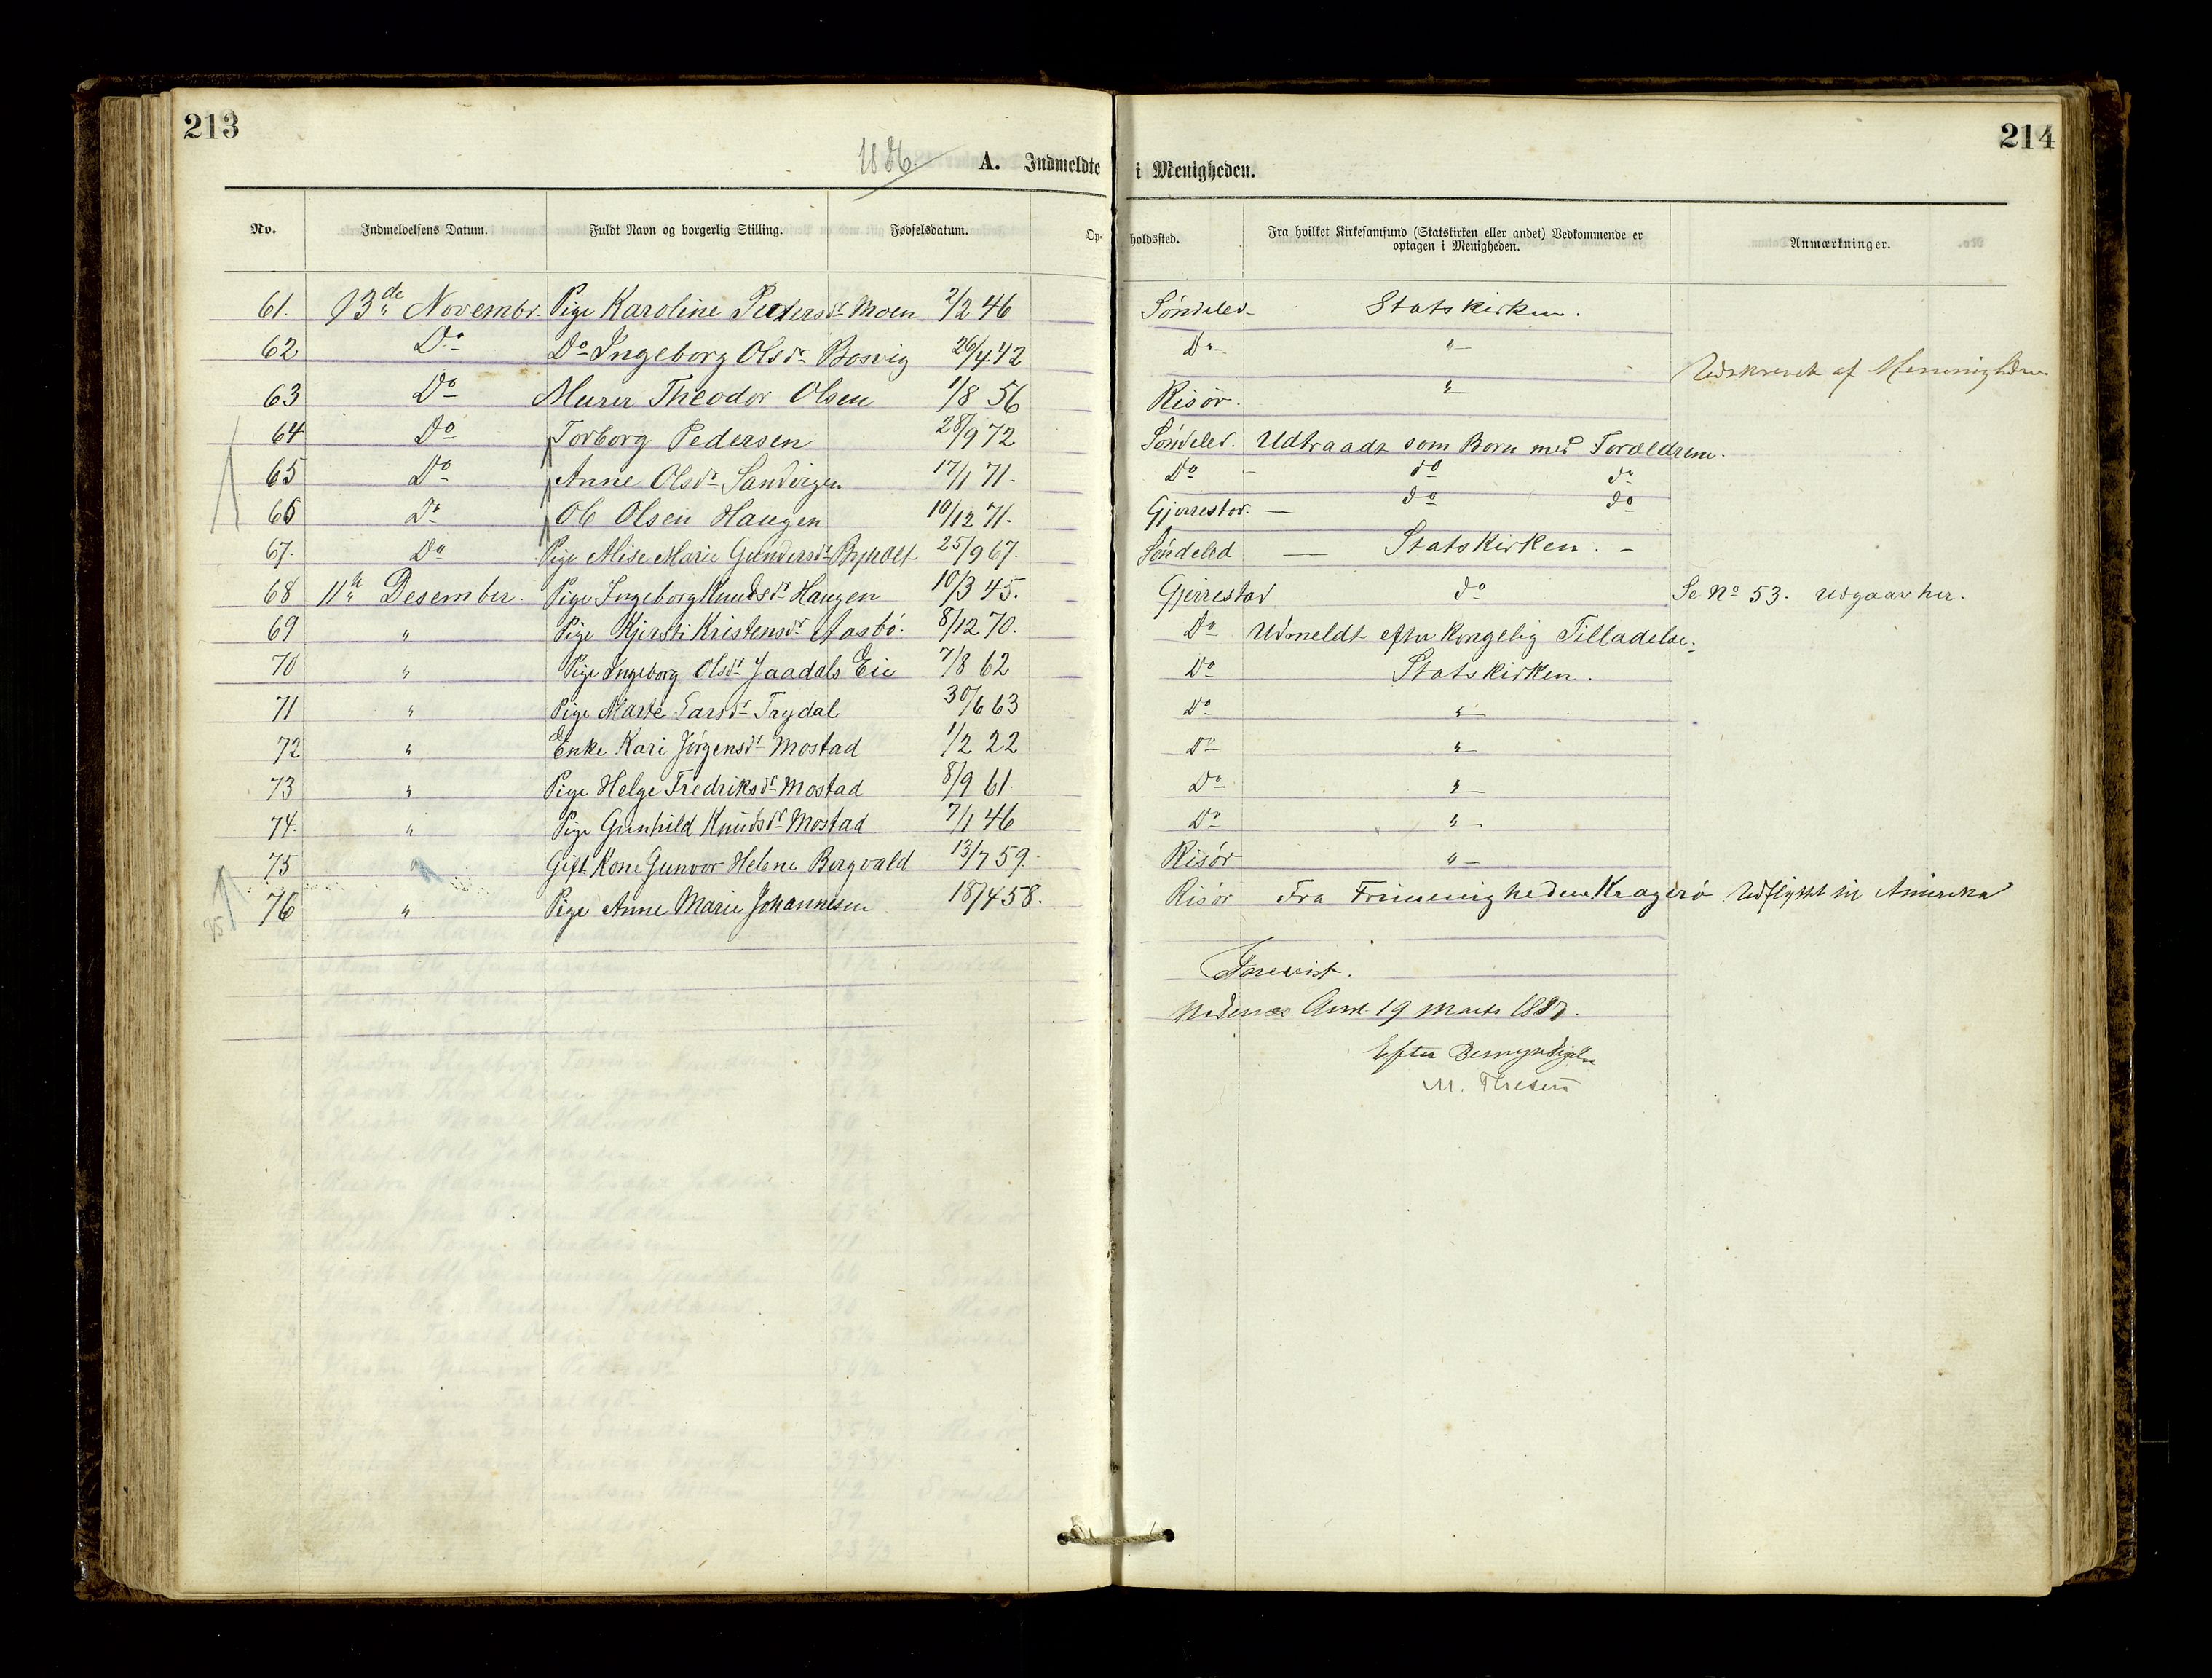 213
214
1886.
A. Indmeldte i Menigheden.
No. Indmeldelsens Datum. Fuldt Navn og borgerlig Stilling. Fødselsdatum. Op-holdssted. Fra hvilket Kirkesamfund (Statskirken eller andet) Vedkommende er optagen i Menigheden. Anmærkninger.
61. 13de Novembr. Pige Karoline Pedersdr Moen 2/2 46 Söndeled Statskirken.
62 Do Do Ingeborg Olsdr Bosvig 26/4 42 Do "
63 Do Murer Theodor Olsen 1/8 56 Risör. " Udskrevet af Menningheden
64 Do Torborg Pedersen 28/9 72 Söndeled. Udtraadt som Born med Foræeldrene.
65 Do Anne Olsdr 17/1 71. Do do do
66 Do Ol Olsen Haugen 10/12 71. Gjerrestad. do do
67. Do Pige Alise Marie Gundersdr 25/9 67. Söndeled Statskirken.
68 11te Desember. Pige Ingeborg Knudsdr Haugen 10/3 45. Gjerrestad do Se No 53. Udgaar her.
69 " Pige Kjersti Kristensdr Aasbö. 8/12 70. Do Udmeldt efter kongelig Tilladelse.
70 " Pige Ingeborg Olsdr Jaadals Eie 7/8 62 Do Statskirken.
71 " Pige Marte Larsdr Trydal 30/6 63 Do "
72 " Enke Kari Jörgensdr Mostad 1/2 22 Do "
73 " Pige Helge Fredriksdr Mostad 8/9 61. Do "
74. " Pige Gunhild Knudsdr Mostad 7/1 46 Do "
75 " Gift Kone Gunvor Helene Bergvald 13/7 59. Risör "
76 " Pige Anne Marie Johannesen 18/4 58. Risör Fra Frimenigheden Kragerö Udflyttet til Amerika
Forevist.
Nedenæs Amt 19 Marts 1887.
Efter Bemyndigelse
M. Thesen